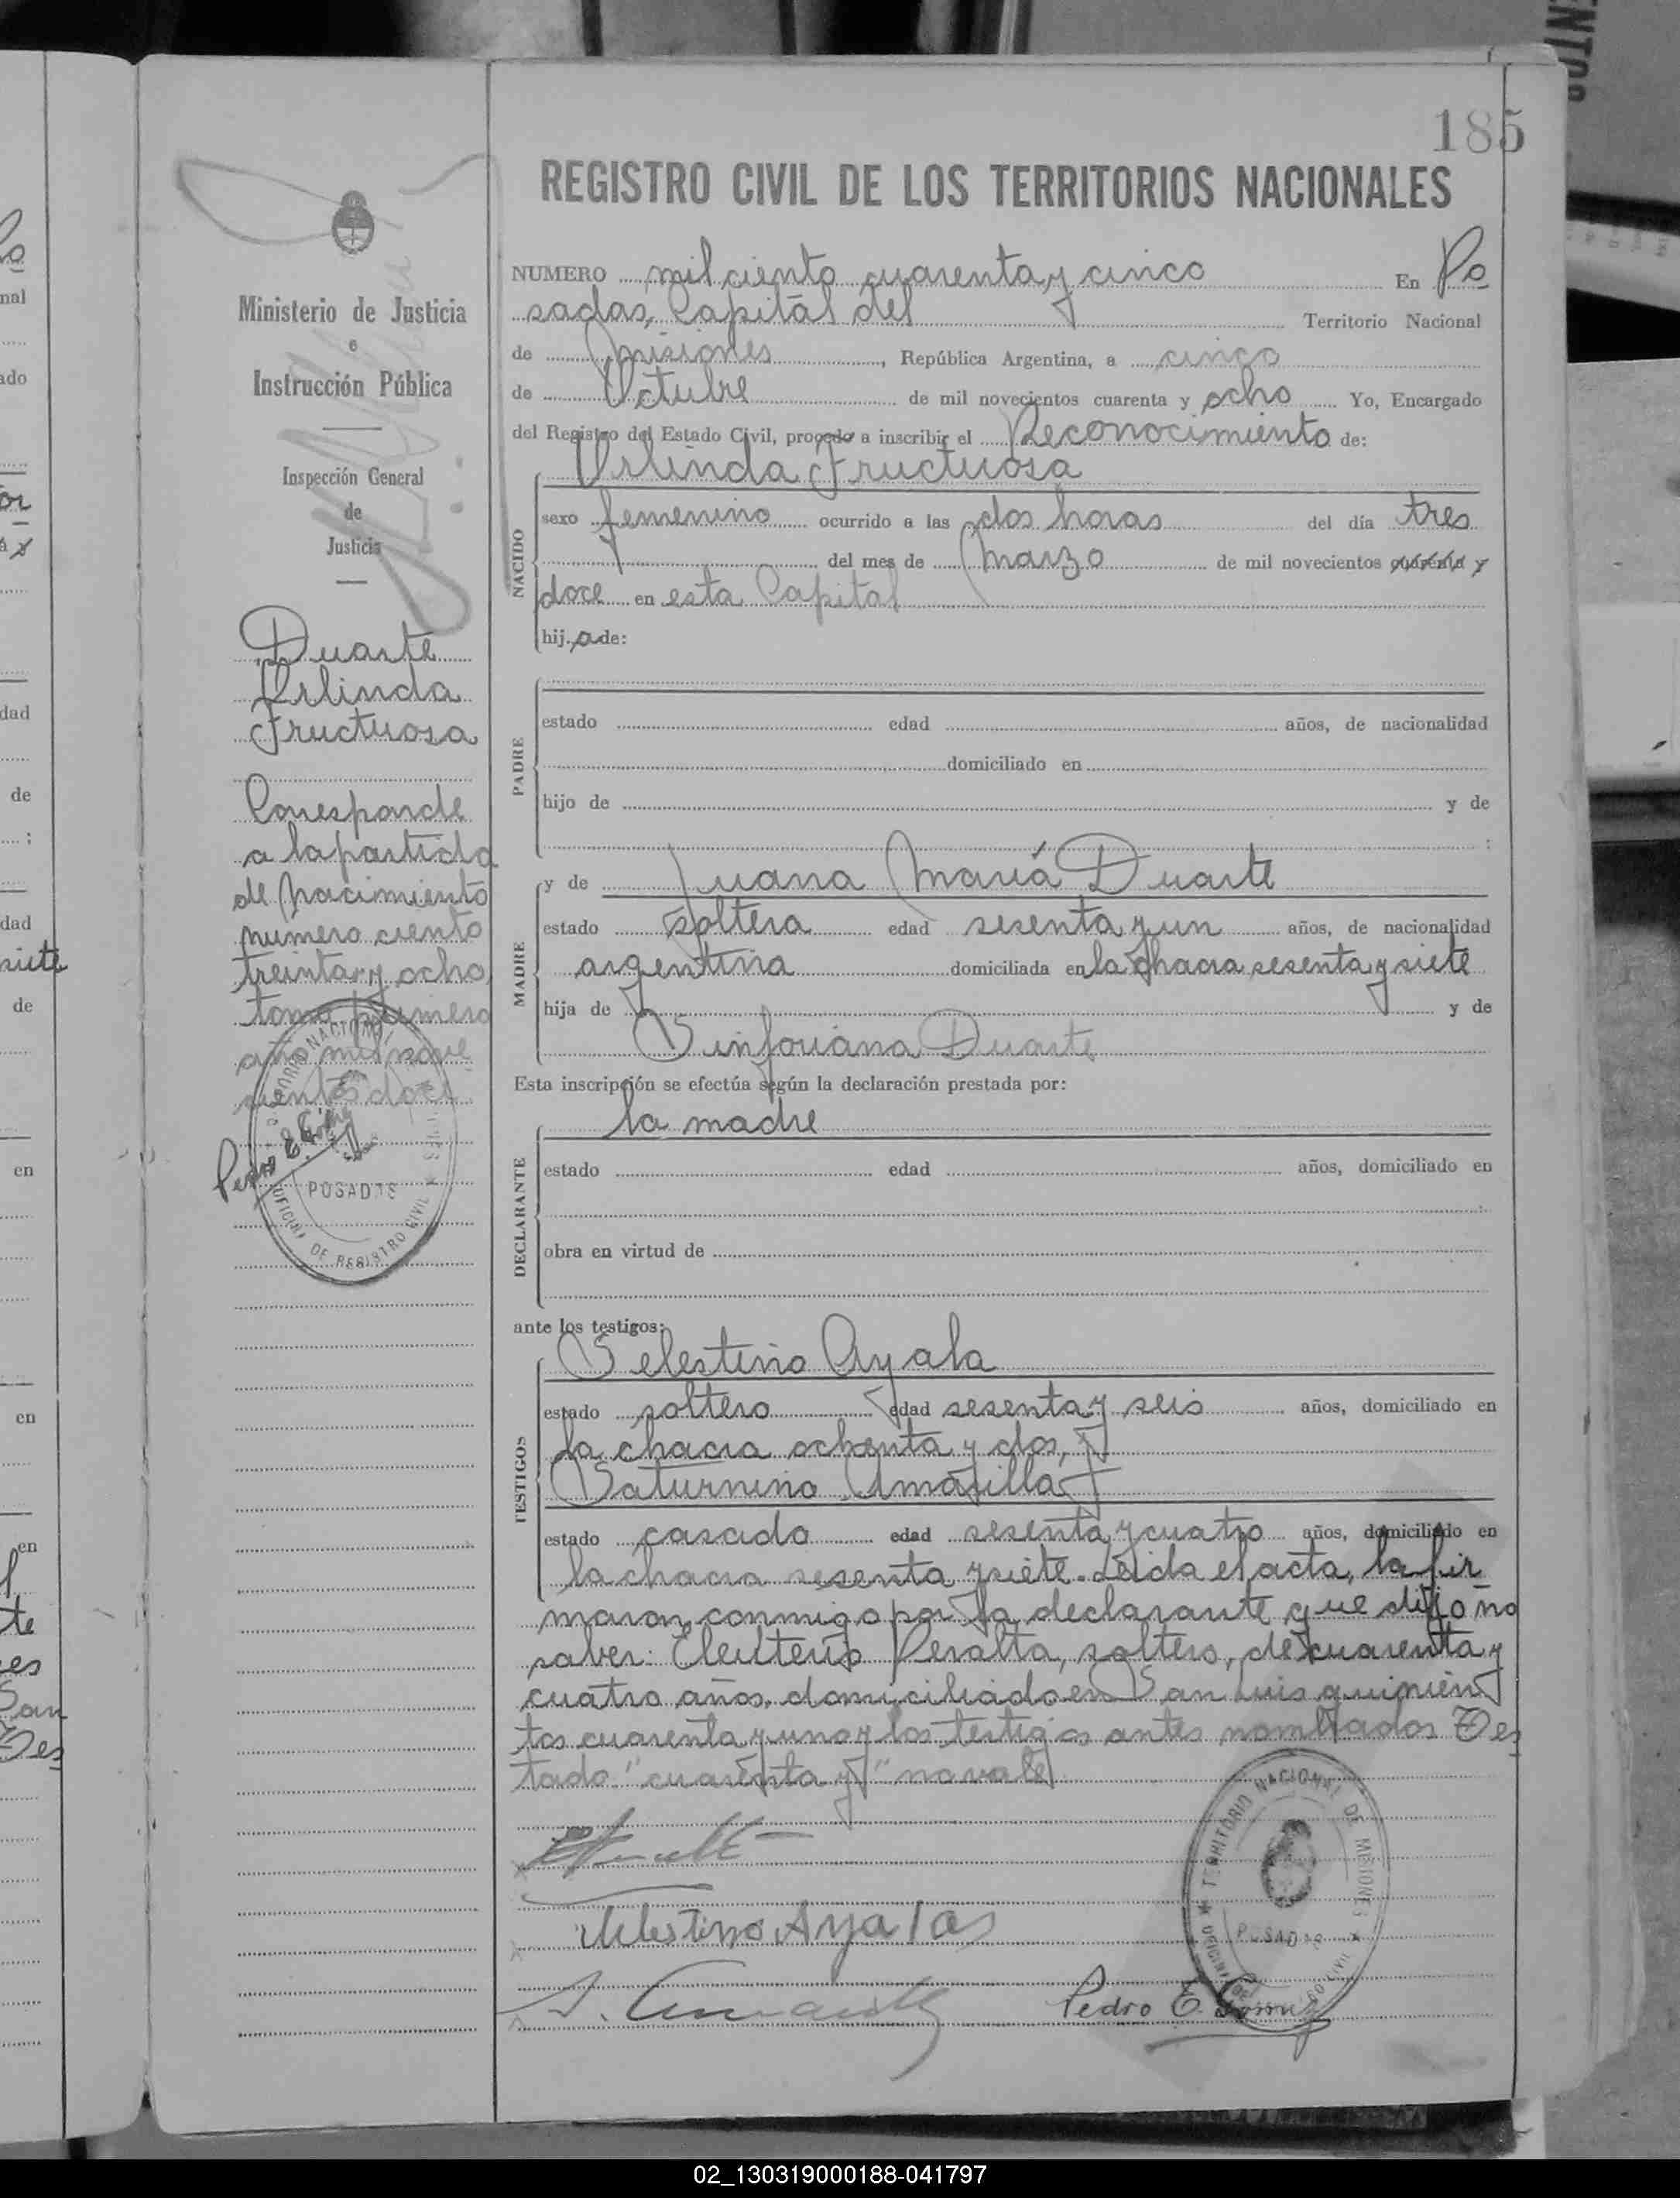 185
REGISTRO CIVIL DE LOS TERRITORIOS NACIONALES
NUMERO mil ciento cuarenta y cinco En Po
sadas, Capital del Territorio Nacional
de Misiones, República Argentina, a cinco
de Octubre de mil novecientos cuarenta y ocho Yo, Encargado
del Registro del Estado Civil, procedo a inscribir el Reconocimiento de:
Orlinda Fructuosa
NACIDO
sexo femenino ocurrido a las dos horas del día tres
del mes de Marzo de mil novecientos cuarenta y
doce en esta Capital
hija de:
PADRE
estado edad años, de nacionalidad
domiciliado en
hijo de y de
;
MADRE
y de Juana María Duarte
estado soltera edad sesenta y un años, de nacionalidad
argentina domiciliada en la chacra sesenta y siete
hija de y de
Sinforiana Duarte
Esta inscripción se efectúa según la declaración prestada por:
la madre
DECLARANTE
estado edad años, domiciliado en
;
obra en virtud de
ante los testigos:
Celestino Ayala
TESTIGOS
estado soltero edad sesenta y seis años, domiciliado en
la chacra ochenta y dos, y
Saturnino Amarilla
estado casado edad sesenta y cuatro años, domiciliado en
la chacra sesenta y siete. Leida el acta, la fir
maron conmigo por la declarante que dijo no
saber: Eleuterio Peralta, soltero, de cuarenta y
cuatro años, domiciliado en San Luis quinien
tos cuarenta y uno y los testigos antes nombrados Tes
tado "cuarenta y" no vale
Celestino Ayala
Pedro E. Gomez
TERRITORIO NACIONAL DE MISIONES
POSADAS
Ministerio de Justicia
e
Instrucción Pública
Inspección General
de
Justicia
Duarte
Orlinda
Fructuosa
Coresponde
a la partida
de nacimiento
numero ciento
treinta y ocho,
tomo primero
año mil nove
cientos doce
Pedro E.
POSADAS
OFICINA DE REGISTRO CIVIL
02_130319000188-041797